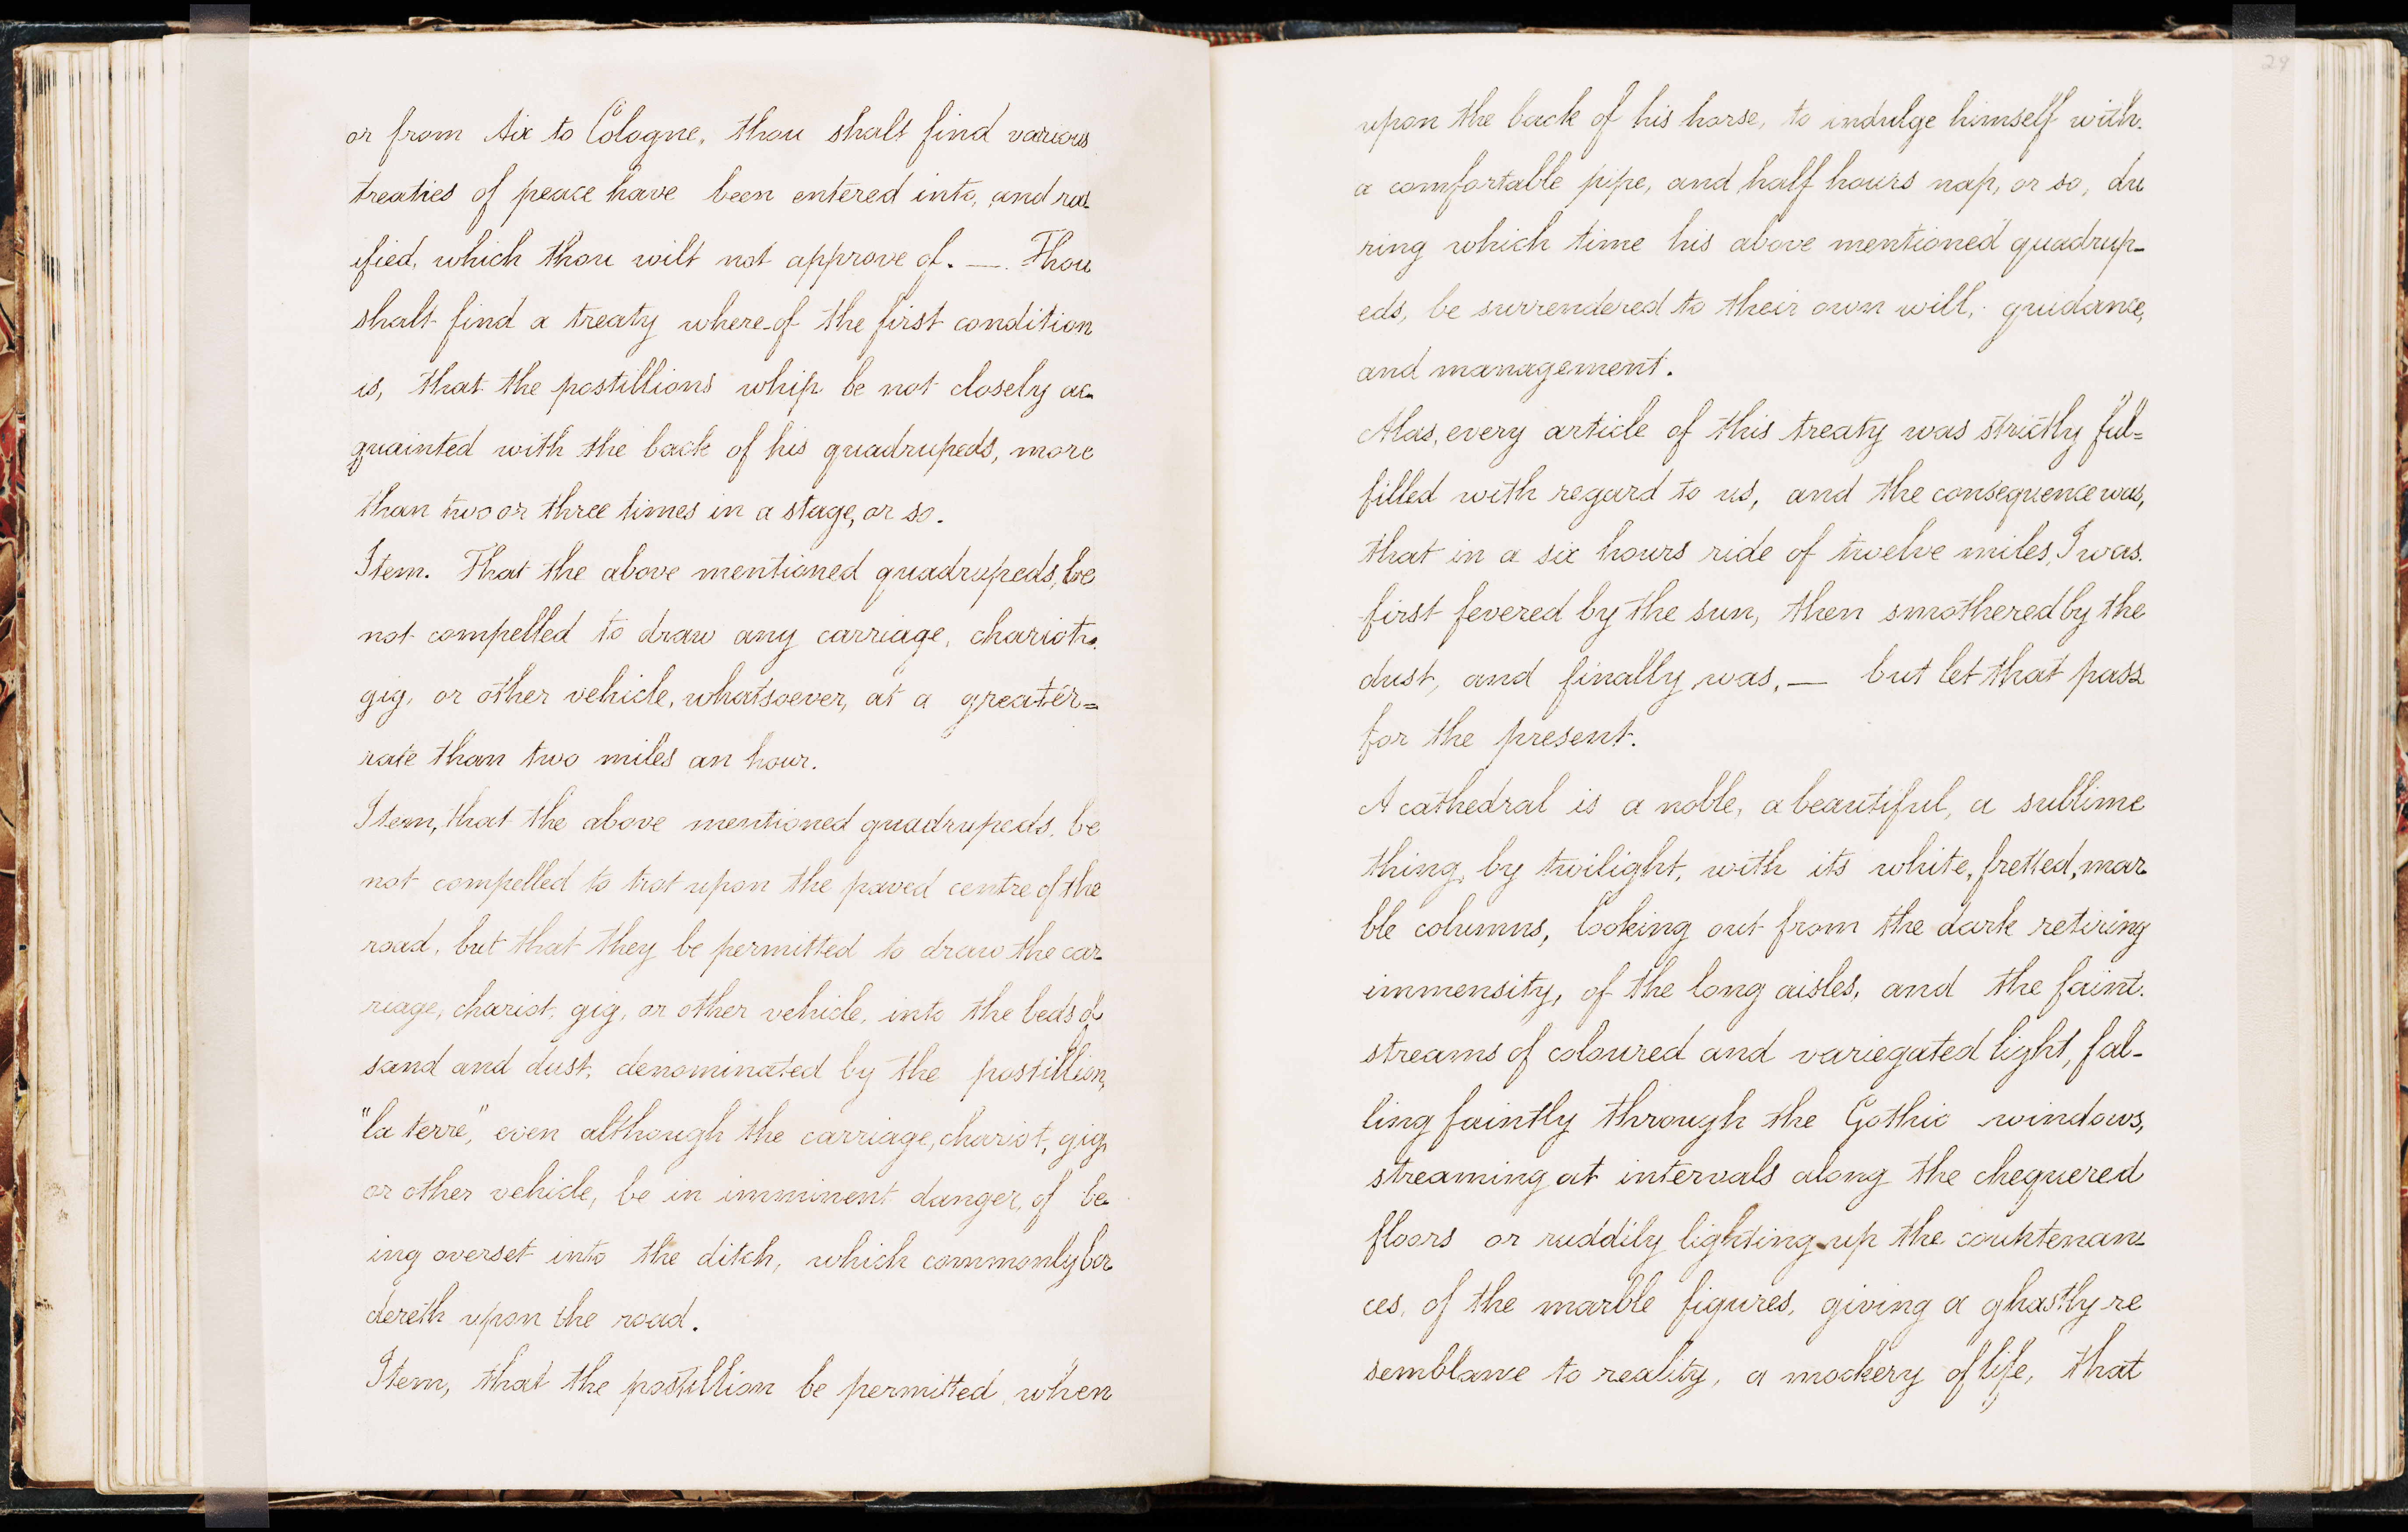 or from Aix to Cologne, thou shalt find various
treaties of peace have been entered into, and rat
ified, which thou wilt not approve of. — Thou
shalt find a treaty where-of the first condition
is, that the postillions whip be not closely ac-
quainted with the back of his quadrupeds, more
than two or three times in a stage, or so.
Item. That the above mentioned quadrupeds, be
not compelled to draw any carriage, chariot,
gig, or other vehicle, whatsoever, at a greater=
rate than two miles an hour.
Item, that the above mentioned quadrupeds, be
not compelled to trot upon the paved centre of the
road, but that they be permitted to draw the car-
riage, chariot, gig, or other vehicle, into the beds of
sand and dust, denominated by the postillion,
"la terre", even although the carriage, chariot, gig,
or other vehicle, be in imminent danger, of be-
ing overset into the ditch, which commonly bor-
dereth upon the road.
Item, that the postillion be permitted, when
29
upon the back of his horse, to indulge himself with
a comfortable pipe, and half hours nap, or so, du
ring which time his above mentioned quadrup-
eds, be surrendered to their own will, guidance,
and management.
Alas, every article of this treaty was strictly ful=
filled with regard to us, and the consequence was,
that in a six hours ride of twelve miles, I was
first fevered by the sun, then smothered by the
dust, and finally was, — but let that pass
for the present.
A cathedral is a noble, a beautiful, a sublime
thing, by twilight, with its white, fretted, mar-
ble columns, looking out from the dark retiring
immensity, of the long aisles, and the faint
streams of coloured and variegated light, fal-
ling faintly through the Gothic windows,
streaming at intervals along the chequered
floors or ruddily lighting up the countenan-
ces, of the marble figures, giving a ghastly re
semblance to reality, a mockery of life, that